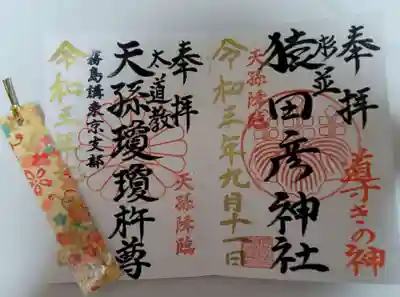 奉拝
導きの神
杉並
猿田彦神社
天孫降臨
令和三年九月十一日
奉拝
天孫降臨
太道教
天孫瓊瓊杵尊
霧島講東京支部
令和三年